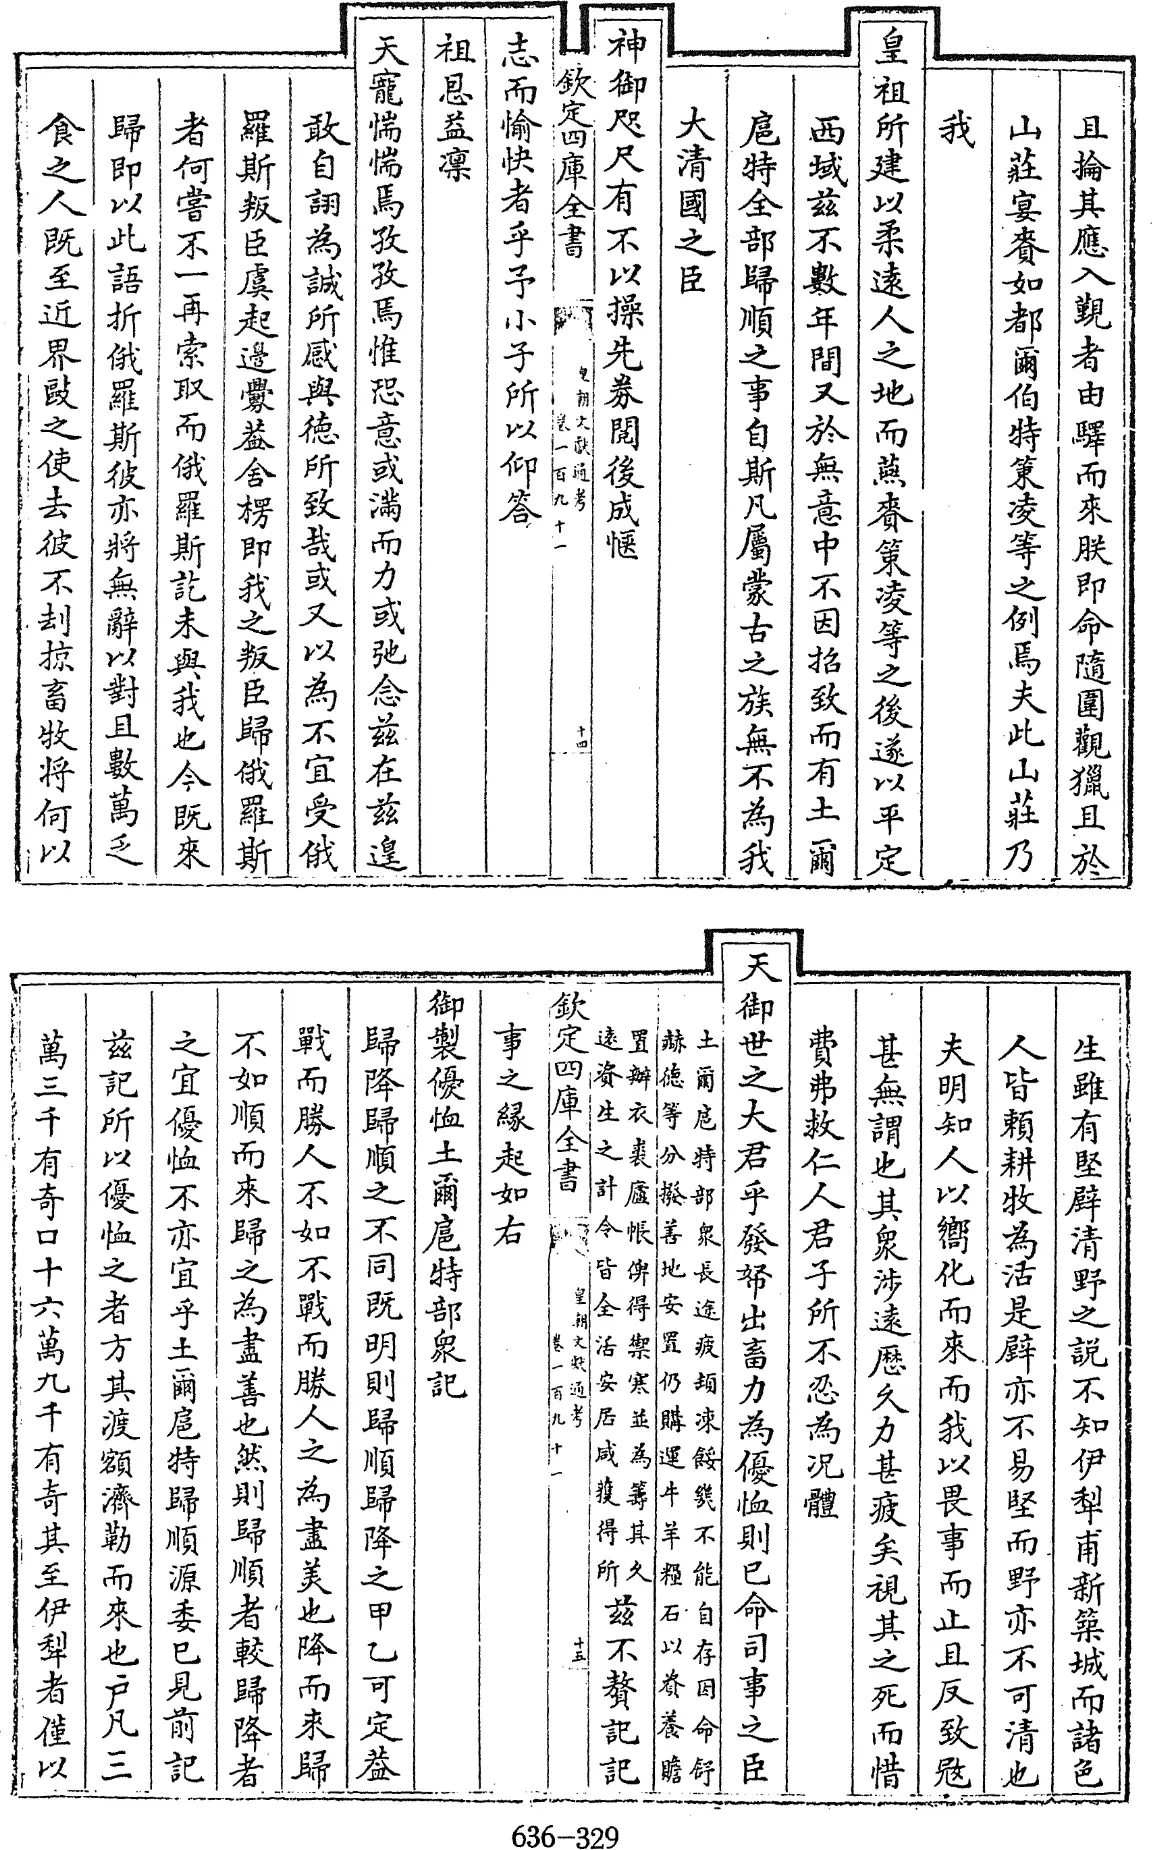 且掄其應入覲者由驛而來朕即命隨圍觀獵且於
山莊宴賚如都爾伯特策凌等之例焉夫此山莊乃
我
皇祖所建以柔遠人之地而燕賚策凌等之後遂以平定
西域兹不數年間又於無意中不因招致而有土爾
扈特全部歸順之事自斯凡屬蒙古之族無不為我
大清國之臣
神御咫尺有不以操先券閲後成愜
欽定四庫全書
皇朝文獻通考
卷一百九十一
十四
志而愉快者乎予小子所以仰答
祖恩益凜
天寵惴惴焉孜孜焉惟恐意或滿而力或弛念兹在兹遑
敢自詡為誠所感與德所致哉或又以為不宜受俄
羅斯叛臣虞起邊釁葢舍楞即我之叛臣歸俄羅斯
者何嘗不一再索取而俄羅斯訖未與我也今既來
歸即以此語折俄羅斯彼亦將無辭以對且數萬乏
食之人既至近界敺之使去彼不刦掠畜牧將何以
生雖有堅壁清野之説不知伊犂甫新築城而諸色
人皆賴耕牧為活是壁亦不易堅而野亦不可清也
夫明知人以嚮化而來而我以畏事而止且反致寇
甚無謂也其衆涉遠歴久力甚疲矣視其之死而惜
費弗救仁人君子所不忍為况體
天御世之大君乎發帑出畜力為優恤則已命司事之臣
土爾扈特部衆長途疲頓凍餒幾不能自存因命舒
赫德等分撥善地安置仍購運牛羊糧石以資養贍
置辦衣裘廬帳俾得禦寒並為籌其久
遠資生之計令皆全活安居咸獲得所
兹不贅記記
欽定四庫全書
皇朝文獻通考
卷一百九十一
十五
事之縁起如右
御製優恤土爾扈特部衆記
歸降歸順之不同既明則歸順歸降之甲乙可定葢
戰而勝人不如不戰而勝人之為盡美也降而來歸
不如順而來歸之為盡善也然則歸順者較歸降者
之宜優恤不亦宜乎土爾扈特歸順源委已見前記
兹記所以優恤之者方其渡額濟勒而來也戸凡三
萬三千有奇口十六萬九千有奇其至伊犂者僅以
636-329